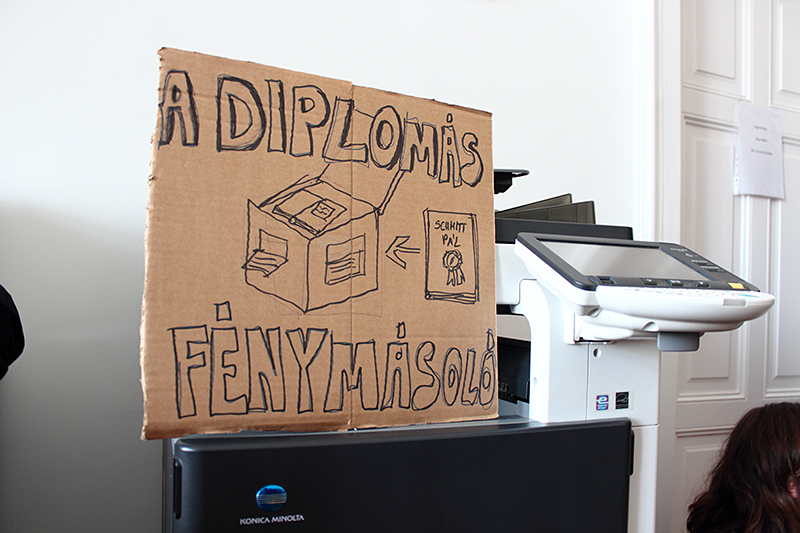 A DIPLOMÁS
SCHMITT
PÁL
FÉNYMÁSOLÓ
KONICA MINOLTA